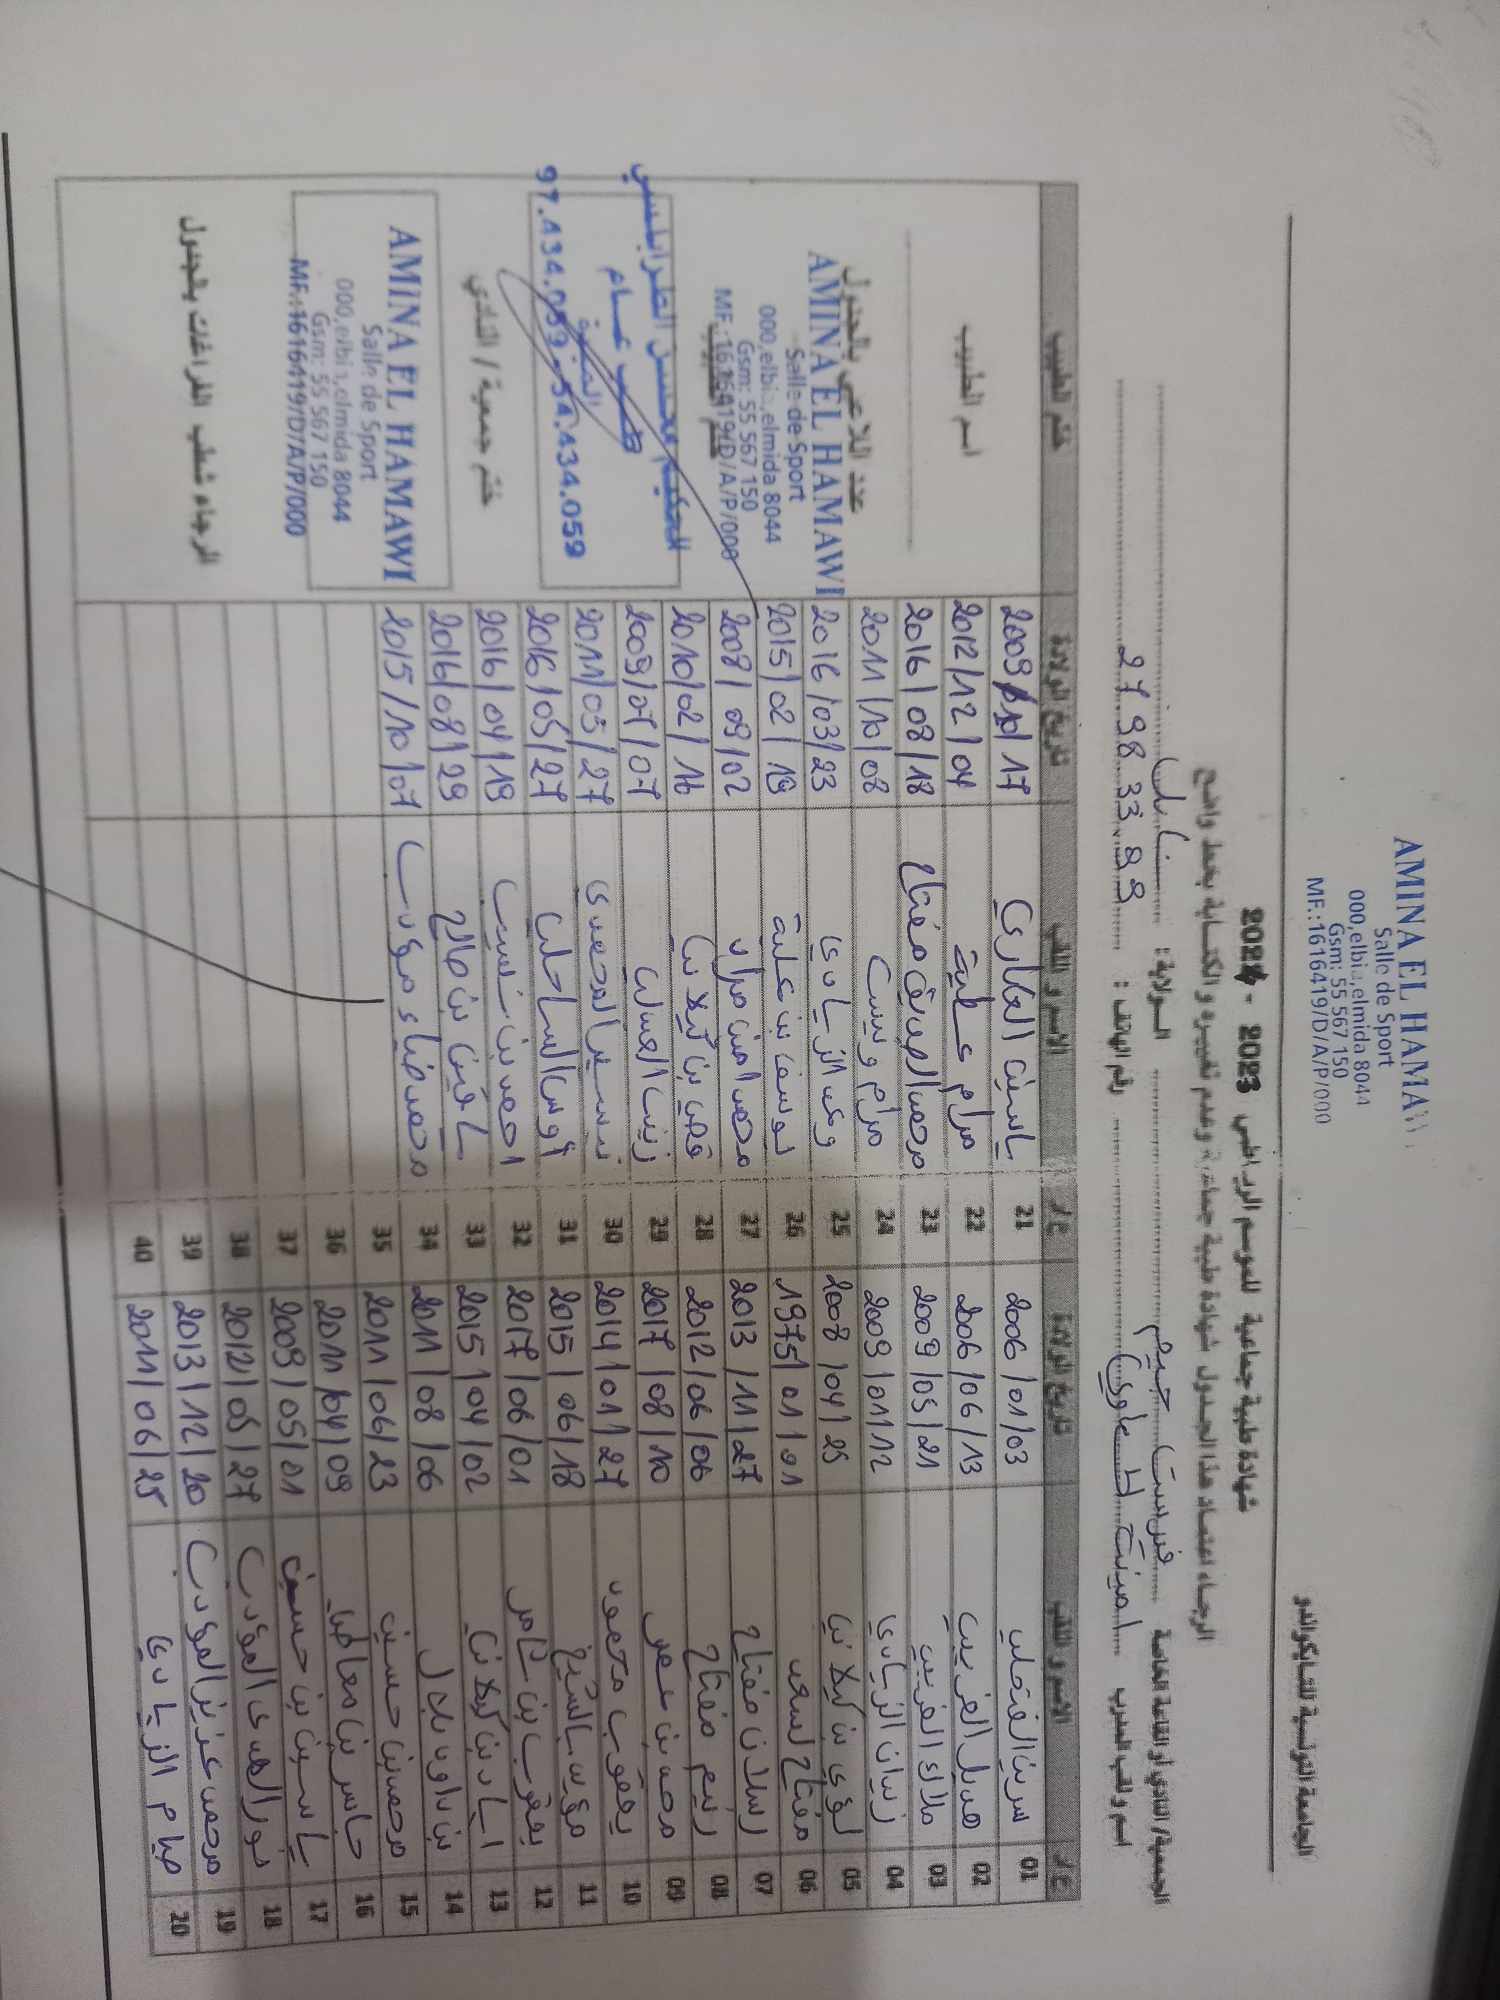 الجامعة التونسية للتايكواندو
AMINA EL HAMAWI
Salle de Sport
000,elbia,elmida 8044
Gsm: 55 567 150
MF.:1616419/D/A/P/000
شهادة طبية جماعية للموسم الرياضي 2023 - 2024
الرجاء اعتماد هذا الجدول شهادة طبية جماعية وعدم تغييره و الكتابة بخط واضح
الجمعية/ النادي أو القاعة الخاصة
الولاية : نابل
اسم ولقب المدرب امينة الحماوي رقم الهاتف : 27983389
ع/ر الاسم و اللقب تاريخ الولادة ع/ر الاسم و اللقب تاريخ الولادة ختم الطبيب
01 2006/01/03 21 ياسين العكاري 2009/10/17
02 2006/06/13 22 مرام عطية 2012/12/04
03 ملاك الغريبي 2009/05/21 23 محمد الصديق مفتاح 2016/08/18
04 زينات الزيادي 2009/01/12 24 مرام ونيس 2011/10/08
05 لؤي بن كيلاني 2008/04/25 25 الزيادي 2016/03/23
06 مفتاح لسعد 1975/01/01 26 يوسف بن عكلية 2015/02/19
07 رسلان مفتاح 2013/11/27 27 محمد امين مراد 2008/09/02
08 رنيم مفتاح 2012/06/06 28 بن كيلاني 2010/02/16
09 محمد بن عمر 2017/08/10 29 زينب العسلي 2009/07/07
10 يعقوب محمود 2014/01/27 30 المحمدي 2011/03/27
11 الشيخ 2015/06/18 31 أوس الساحلي 2016/05/27
12 يعقوب بن ثامر 2017/06/01 32 احمد بن نصيب 2016/04/19
13 اياد بن كيلاني 2015/04/02 33 بن صالح 2016/08/29
14 بن داود بلال 2011/08/06 34 محمد ضياء مؤدب 2015/10/07
15 محمد بن حسين 2011/06/23 35
16 بن معاطي 2011/04/09 36
17 ياسين بن حسين 2009/05/01 37
18 نور الهدى المؤدب 2012/05/27 38
19 محمد عزيز المؤدب 2013/12/20 39
20 صيام الزيادي 2011/06/25 40
اسم الطبيب
عدد اللاعبي بالجدول
AMINA EL HAMAWI
Salle de Sport
000,elbia,elmida 8044
Gsm: 55 567 150
MF.:1616419/D/A/P/000
ختم الطبيب
الحكيم محسن الطرابلسي
طب عام
97.434.059 - 54.434.059
ختم جمعية / النادي
AMINA EL HAMAWI
Salle de Sport
000,elbia,elmida 8044
Gsm: 55 567 150
MF.:1616419/D/A/P/000
الرجاء شطب الفراغات بالجدول